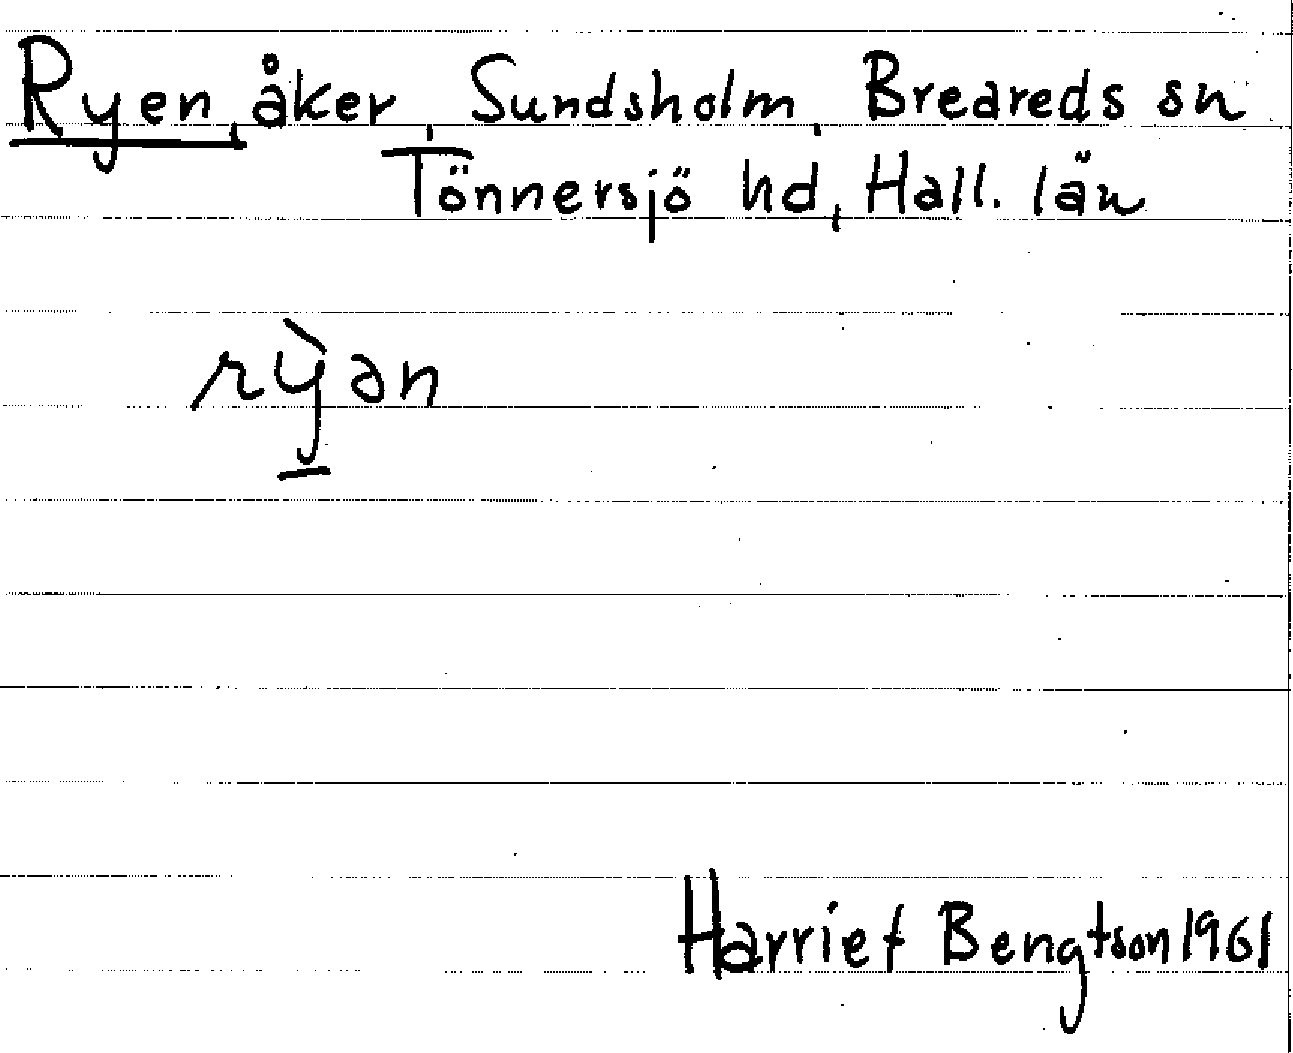 Ryen, åker, Sundsholm, Breareds sn
Tönnersjö hd, Hall. län
rỳ̲ən
Harriet Bengtson 1961